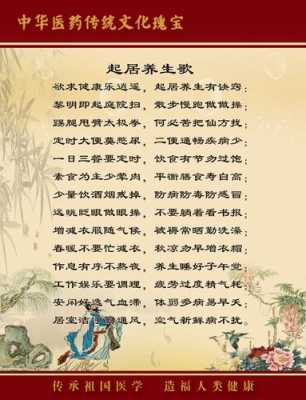 中华医药传统文化瑰宝
起居养生歌
欲求健康乐逍遥，起居养生有诀窍：
黎明即起庭院扫，散步慢跑做做操；
踢腿甩臂太极拳，何必苦把仙方找；
定时大便莫憋尿，二便通畅疾病少；
一日三餐要定时，饮食有节勿过饱；
素食为主少荤肉，平衡膳食寿自高；
少量饮酒烟戒掉，防病防毒防感冒；
远眺眨眼做眼操，不要躺着看书报；
增减衣服随气候，被褥常晒勤洗澡；
春暖不要忙减衣，秋凉勿早增衣帽；
作息有序不熬夜，养生睡好子午觉；
工作娱乐要调理，疲劳过度精气耗；
安闲好逸气血滞，体弱多病易早夭；
居室洁 通风，空气新鲜病不扰。
传承祖国医学 造福人类健康